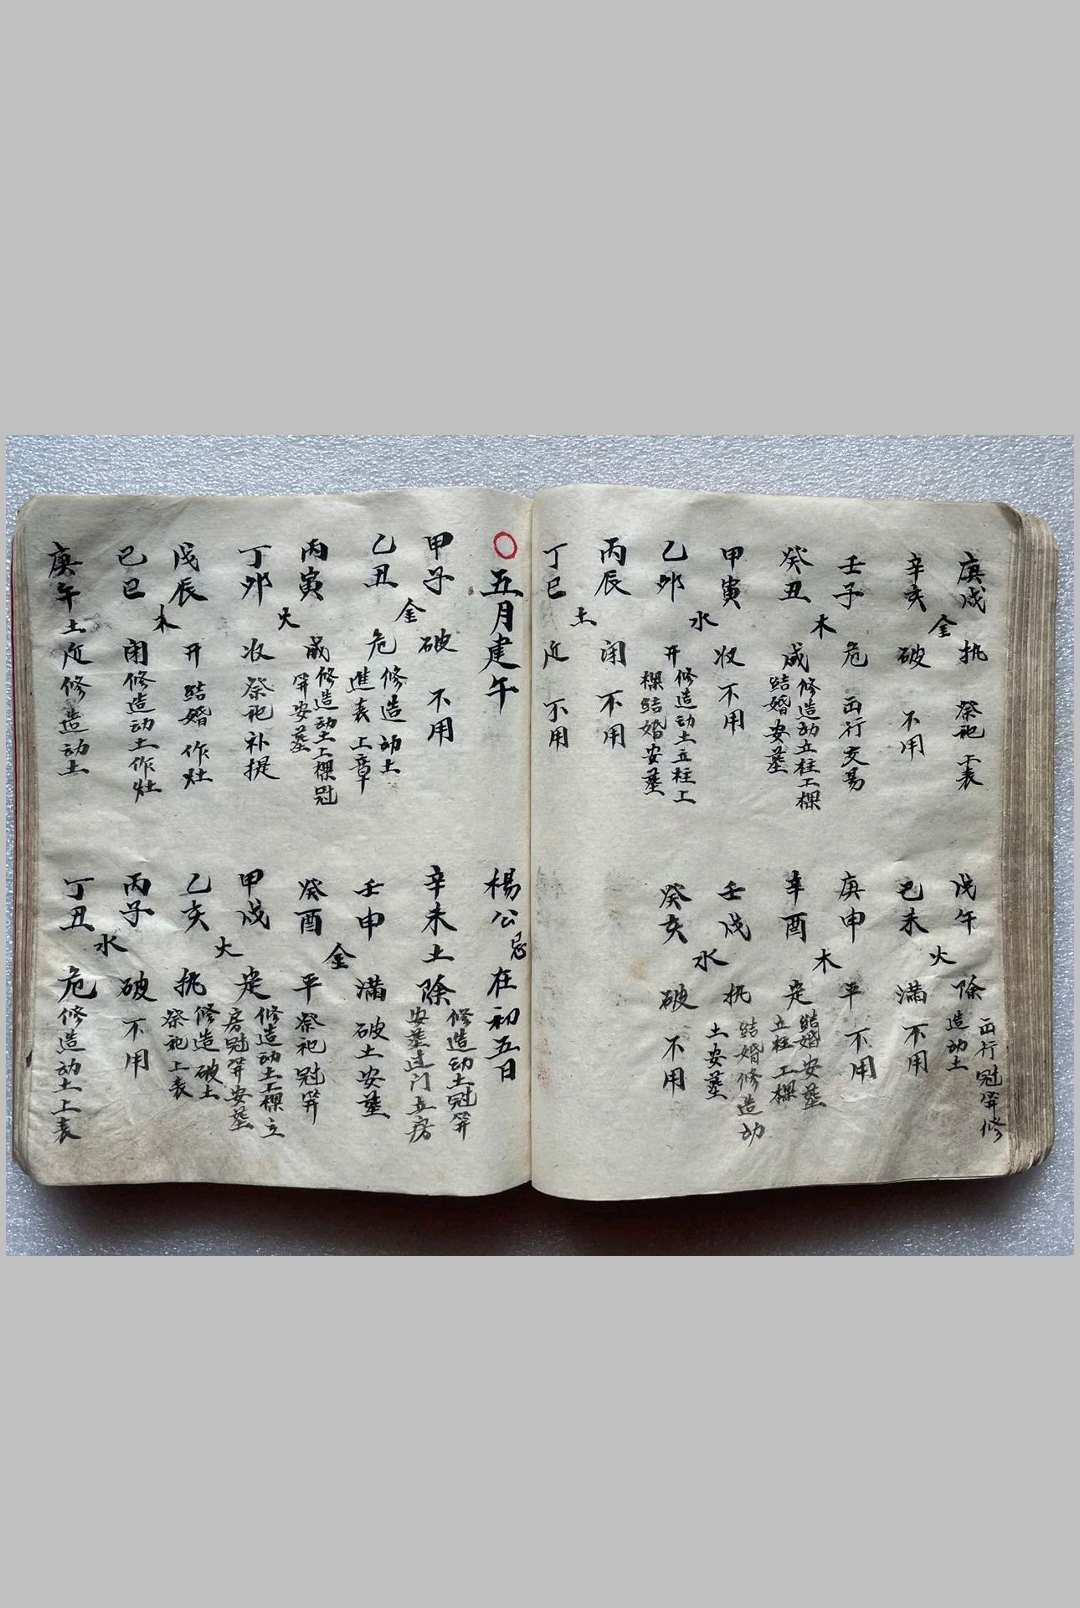 庚戌 执 祭祀 上表
金
辛亥 破 不用
壬子 危 出行交易
木
癸丑 成 修造动立柱上樑
结婚安葬
甲寅 收 不用
水
乙卯 开 修造动土立柱上
樑结婚安葬
丙辰 闭 不用
土
丁巳 不用
戊午 除 出行冠笄修
造动土
火
己未 满 不用
庚申 平 不用
木
辛酉 定 结婚安葬
立柱上樑
壬戌 执 结婚修造动
土安葬
水
癸亥 破 不用
五月建午 楊公忌在初五日
甲子 破 不用
金
乙丑 危 修造动土
進表上章
丙寅 成 修造动土上樑冠
笄安葬
火
丁卯 收 祭祀补提
戊辰 开 结婚作灶
木
己巳 闭 修造动土作灶
庚午 土 修造动土
辛未 土 除 修造动土冠笄
安葬过门立房
壬申 满 破土安葬
金
癸酉 平 祭祀冠笄
甲戌 定 修造动土上樑立
房冠笄安葬
火
乙亥 执 修造破土
祭祀上表
丙子 破 不用
水
丁丑 危 修造动土上表